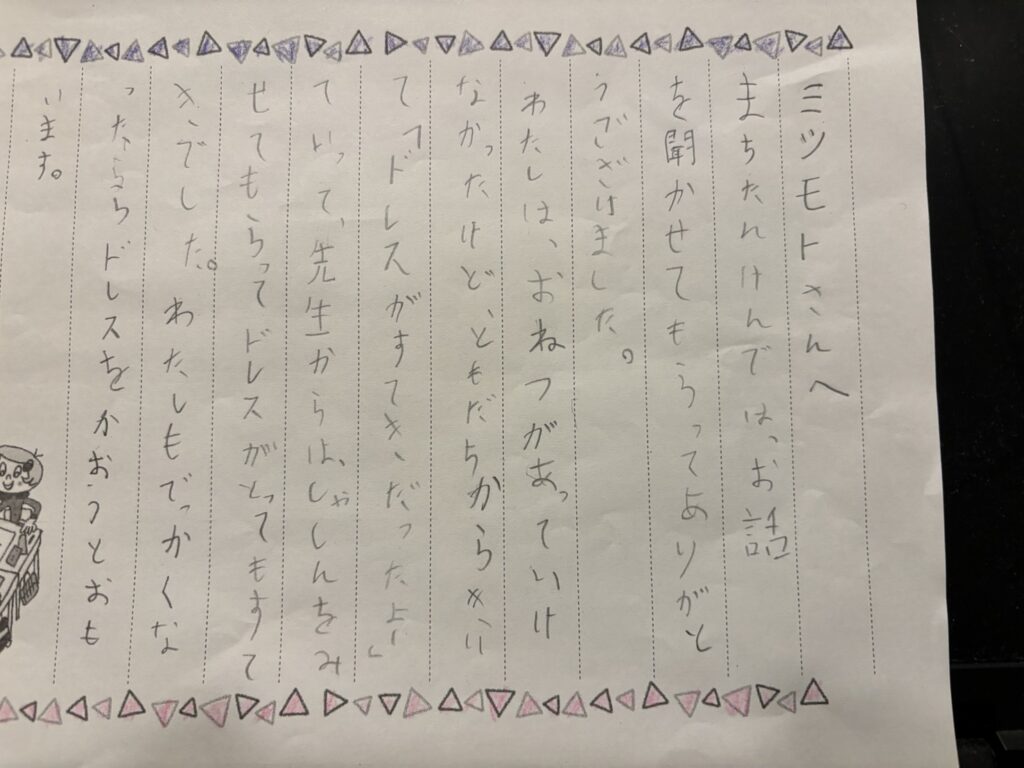 ミツモトさんへ
まちたんけんでは、お話
を聞かせてもらってありがと
うございました。
わたしは、おねつがあっていけ
なかったけど、ともだちからきい
て「ドレスがすてきだったよ」
ていって、先生からは、しゃしんをみ
せてもらってドレスがとってもすて
きでした。わたしもでっかくな
ったらドレスをかおうとおも
います。